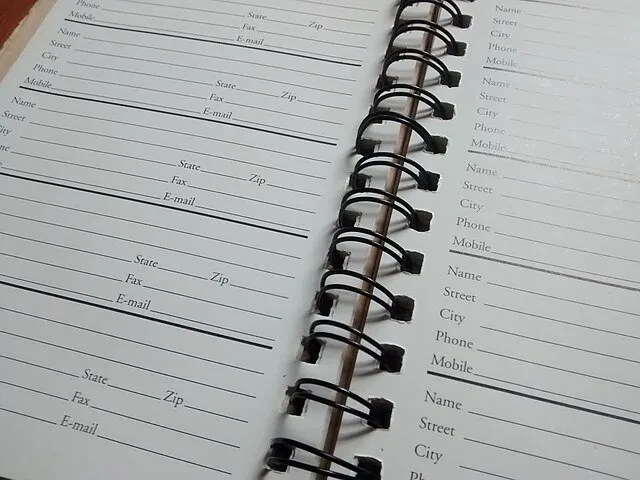 State Zip
Phone Fax
Mobile E-mail
Name
Street
City State Zip
Phone Fax
Mobile E-mail
Name
Street
ity State Zip
ne Fax
e E-mail
State Zip
Fax
E-mail
State Zip
Fax
E-mail
Name
Street
City
Phone
Mobile
Name
Street
City
Phone
Mobile
Name
Street
City
Phone
Mobile
Name
Street
City
Phone
Mobile
Name
Street
City
Ph